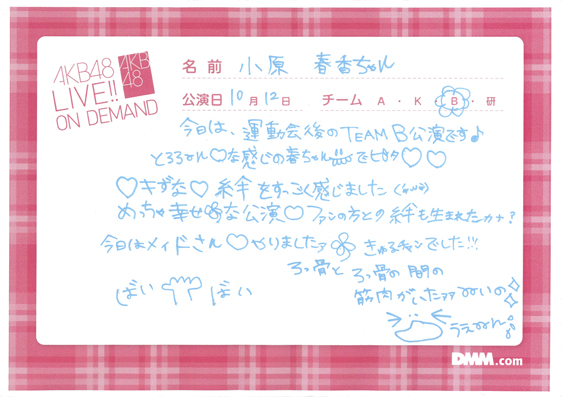 AKB48
LIVE!!
ON DEMAND
AKB
48
名前 小原 春香ちゃん
公演日 10月12日 チーム A・K・B・研
今日は、運動会後のTEAM B公演です♪
♡な感じの春ちゃん
♡きずな♡ 絆をすっごく感じました
めっちゃ幸せな公演♡ファンの方との絆も生まれたカナ?
今日はメイドさん♡やりましたァ きゅるキャンでした!!
ろっ骨と ろっ骨の間の
筋肉がいたァァァいの
ばい ばい
うえーん
DMM.com